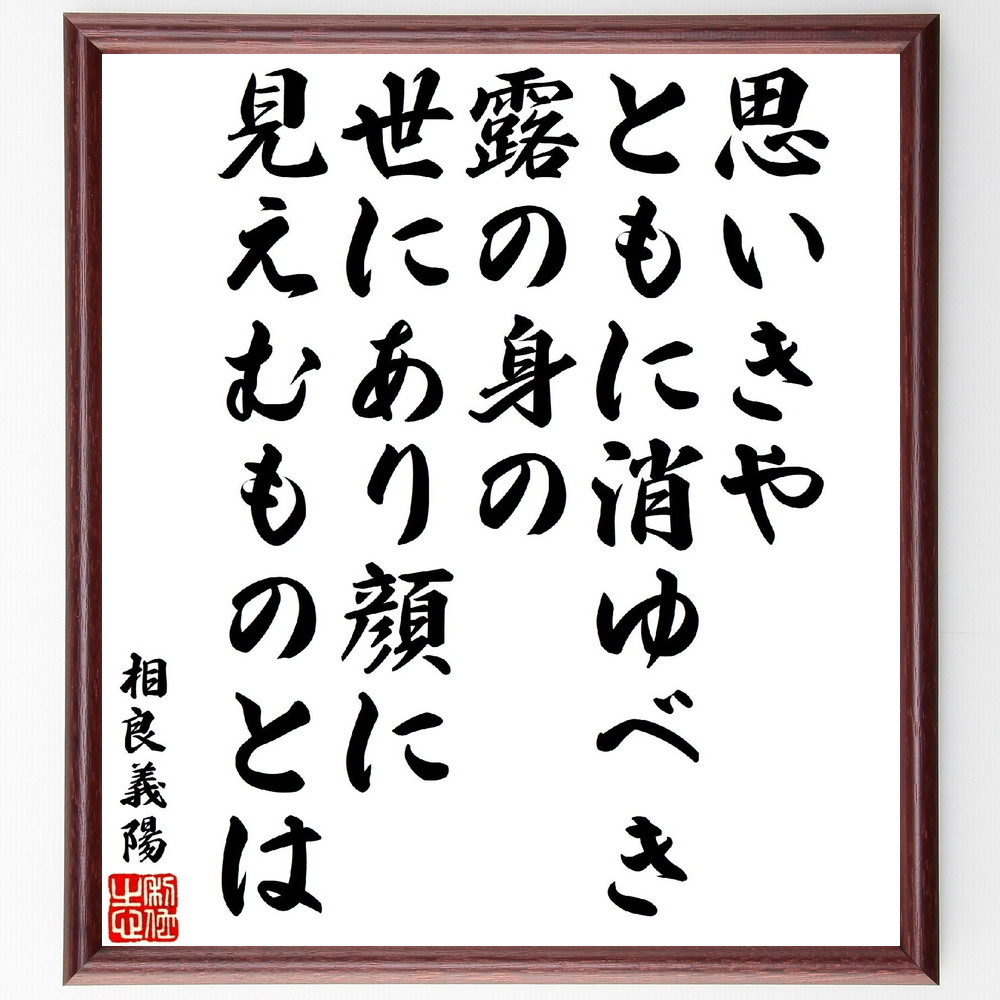 思いきや
ともに消ゆべき
露の身の
世にあり顔に
見えむものとは
相良義陽